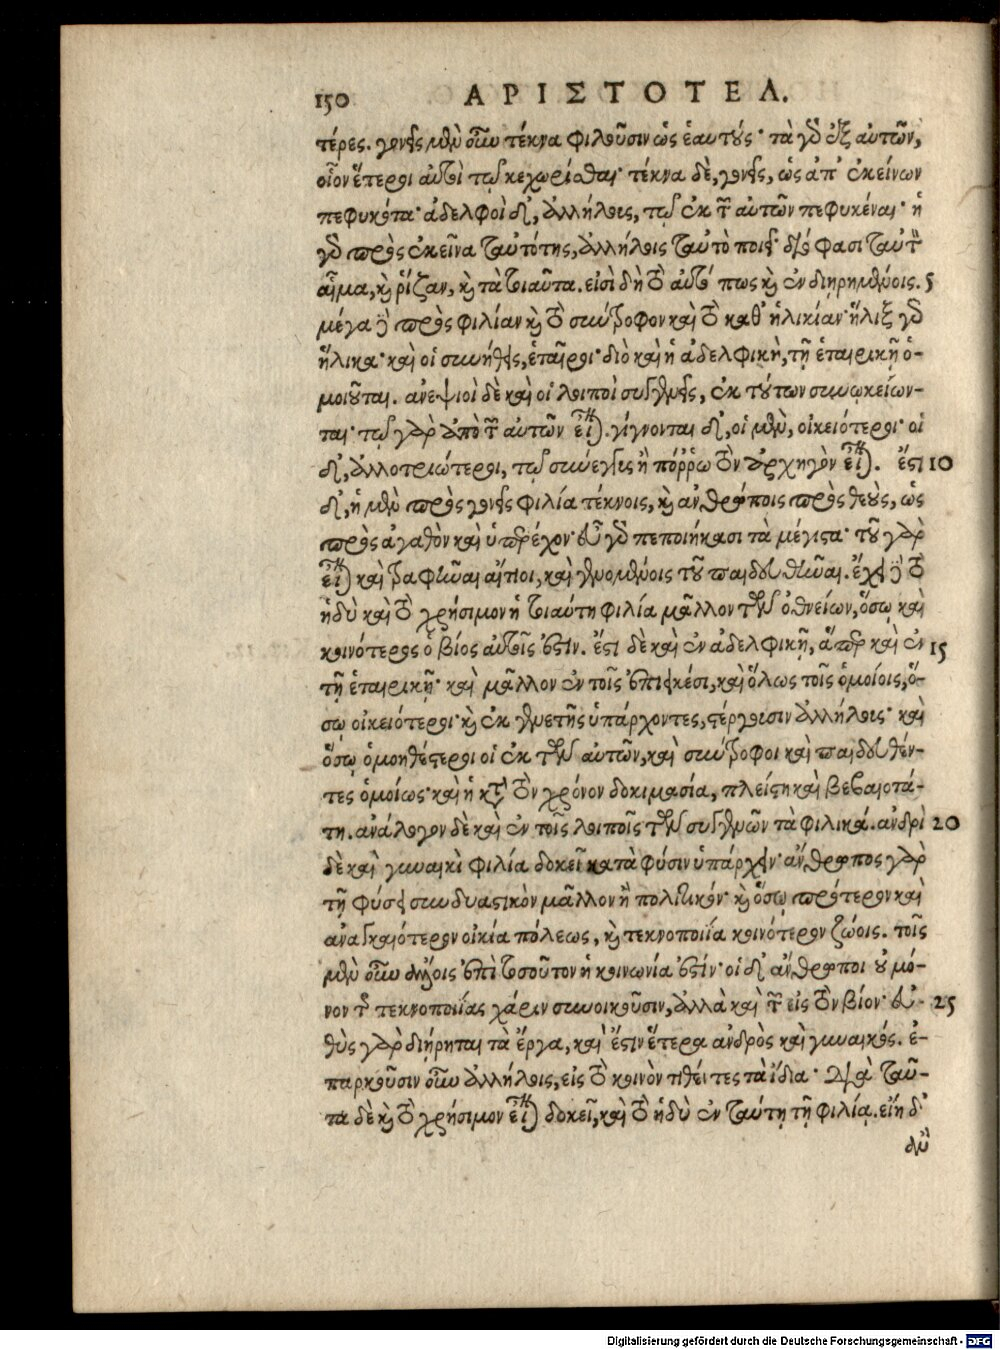 150 ΑΡΙΣΤΟΤΕΛ.
τέρες. γονεῖς μὲν οὖν τέκνα φιλοῦσιν ὡς ἑαυτούς· τὰ γὰρ ἐξ αὐτῶν,
οἷον ἕτεροι αὐτοὶ τῷ κεχωρίσθαι· τέκνα δὲ, γονεῖς, ὡς ἀπ' ἐκείνων
πεφυκότα· ἀδελφοὶ δ', ἀλλήλοις, τῷ ἐκ τῶν αὐτῶν πεφυκέναι· ἡ
γὰρ πρὸς ἐκεῖνα ταυτότης, ἀλλήλοις ταὐτὸ ποιεῖ· διό φασι ταὐτὸν
αἷμα, καὶ ῥίζαν, καὶ τὰ τοιαῦτα. εἰσὶ δὴ τὸ αὐτό πως καὶ ἐν διηρημένοις. 5
μέγα δὲ πρὸς φιλίαν καὶ τὸ σύντροφον καὶ τὸ καθ' ἡλικίαν· ἥλιξ γὰρ
ἥλικα· καὶ οἱ συνήθεις, ἑταῖροι· διὸ καὶ ἡ ἀδελφικὴ, τῇ ἑταιρικῇ ὁ-
μοιοῦται. ἀνεψιοὶ δὲ καὶ οἱ λοιποὶ συγγενεῖς, ἐκ τούτων συνῳκείων-
ται· τῷ γὰρ ἀπὸ τῶν αὐτῶν εἶναι. γίγνονται δ', οἱ μὲν, οἰκειότεροι· οἱ
δ', ἀλλοτριώτεροι, τῷ σύνεγγυς ἢ πόῤῥω τὸν ἀρχηγὸν εἶναι. ἔστι 10
δ', ἡ μὲν πρὸς γονεῖς φιλία τέκνοις, καὶ ἀνθρώποις πρὸς θεοὺς, ὡς
πρὸς ἀγαθὸν καὶ ὑπερέχον· εὖ γὰρ πεποιήκασι τὰ μέγιστα· τοῦ γὰρ
εἶναι καὶ τραφῆναι αἴτιοι, καὶ γενομένοις τοῦ παιδευθῆναι. ἔχει δὲ τὸ
ἡδὺ καὶ τὸ χρήσιμον ἡ τοιαύτη φιλία μᾶλλον τῶν ὀθνείων, ὅσῳ καὶ
κοινότερος ὁ βίος αὐτοῖς ἐστίν. ἔστι δὲ καὶ ἐν ἀδελφικῇ, ἅπερ καὶ ἐν 15
τῇ ἑταιρικῇ· καὶ μᾶλλον ἐν τοῖς ἐπιεικέσι, καὶ ὅλως τοῖς ὁμοίοις, ὅ-
σῳ οἰκειότεροι· καὶ ἐκ γενετῆς ὑπάρχοντες, στέργουσιν ἀλλήλοις· καὶ
ὅσῳ ὁμοηθέστεροι οἱ ἐκ τῶν αὐτῶν, καὶ σύντροφοι καὶ παιδευθέν-
τες ὁμοίως· καὶ ἡ κατὰ τὸν χρόνον δοκιμασία, πλείστη καὶ βεβαιοτά-
τη. ἀνάλογον δὲ καὶ ἐν τοῖς λοιποῖς τῶν συγγενῶν τὰ φιλικά. ἀνδρὶ 20
δὲ καὶ γυναικὶ φιλία δοκεῖ κατὰ φύσιν ὑπάρχειν· ἄνθρωπος γὰρ
τῇ φύσει συνδυαστικὸν μᾶλλον ἢ πολιτικόν· καὶ ὅσῳ πρότερον καὶ
ἀναγκαιότερον οἰκία πόλεως, καὶ τεκνοποιία κοινότερον ζώοις. τοῖς
μὲν οὖν ἄλλοις ἐπὶ τοσοῦτον ἡ κοινωνία ἐστίν· οἱ δ' ἄνθρωποι οὐ μό-
νον τῆς τεκνοποιίας χάριν συνοικοῦσιν, ἀλλὰ καὶ τῶν εἰς τὸν βίον· εὐ- 25
θὺς γὰρ διήρηται τὰ ἔργα, καὶ ἔστιν ἕτερα ἀνδρὸς καὶ γυναικός. ἐ-
παρκοῦσιν οὖν ἀλλήλοις, εἰς τὸ κοινὸν τιθέντες τὰ ἴδια· διὰ ταῦ-
τα δὲ καὶ τὸ χρήσιμον εἶναι δοκεῖ, καὶ τὸ ἡδὺ ἐν ταύτῃ τῇ φιλίᾳ. εἴη δ'
ἂν
Digitalisierung gefördert durch die Deutsche Forschungsgemeinschaft - DFG